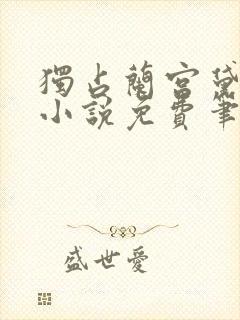 獨占蘭宮
小說免費筆
盛世愛